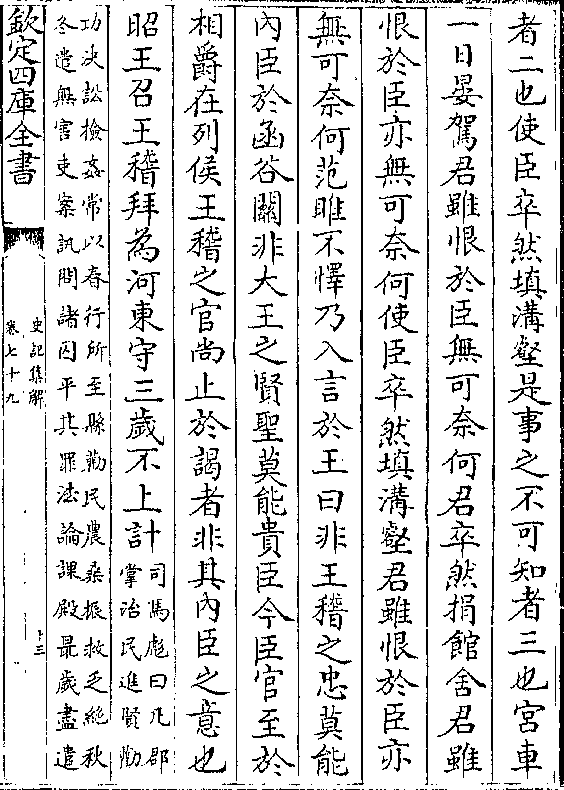 者二也使臣卒然填溝壑是事之不可知者三也宮車
一日晏駕君雖恨於臣無可奈何君卒然捐館舍君雖
恨於臣亦無可奈何使臣卒然填溝壑君雖恨於臣亦
無可奈何范雎不懌乃入言於王曰非王稽之忠莫能
內臣於函谷關非大王之賢聖莫能貴臣今臣官至於
相爵在列侯王稽之官尚止於謁者非其內臣之意也
昭王召王稽拜為河東守三歲不上計
司馬彪曰凡郡
掌治民進賢勸
功決訟檢姦常以春行所至縣勸民農桑振救乏絶秋
冬遣無害吏案訊問諸囚平其罪法論課殿最歲盡遣
欽定四庫全書
史記集解
卷七十九
十三